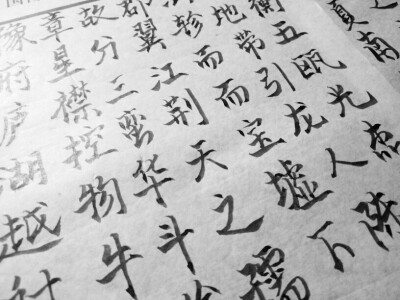 豫章故都
府星分翼轸地衡
庐襟三江而帶五
湖控蛮荆而引瓯
越物华天宝龙光
射牛斗之墟人杰
孺下陈